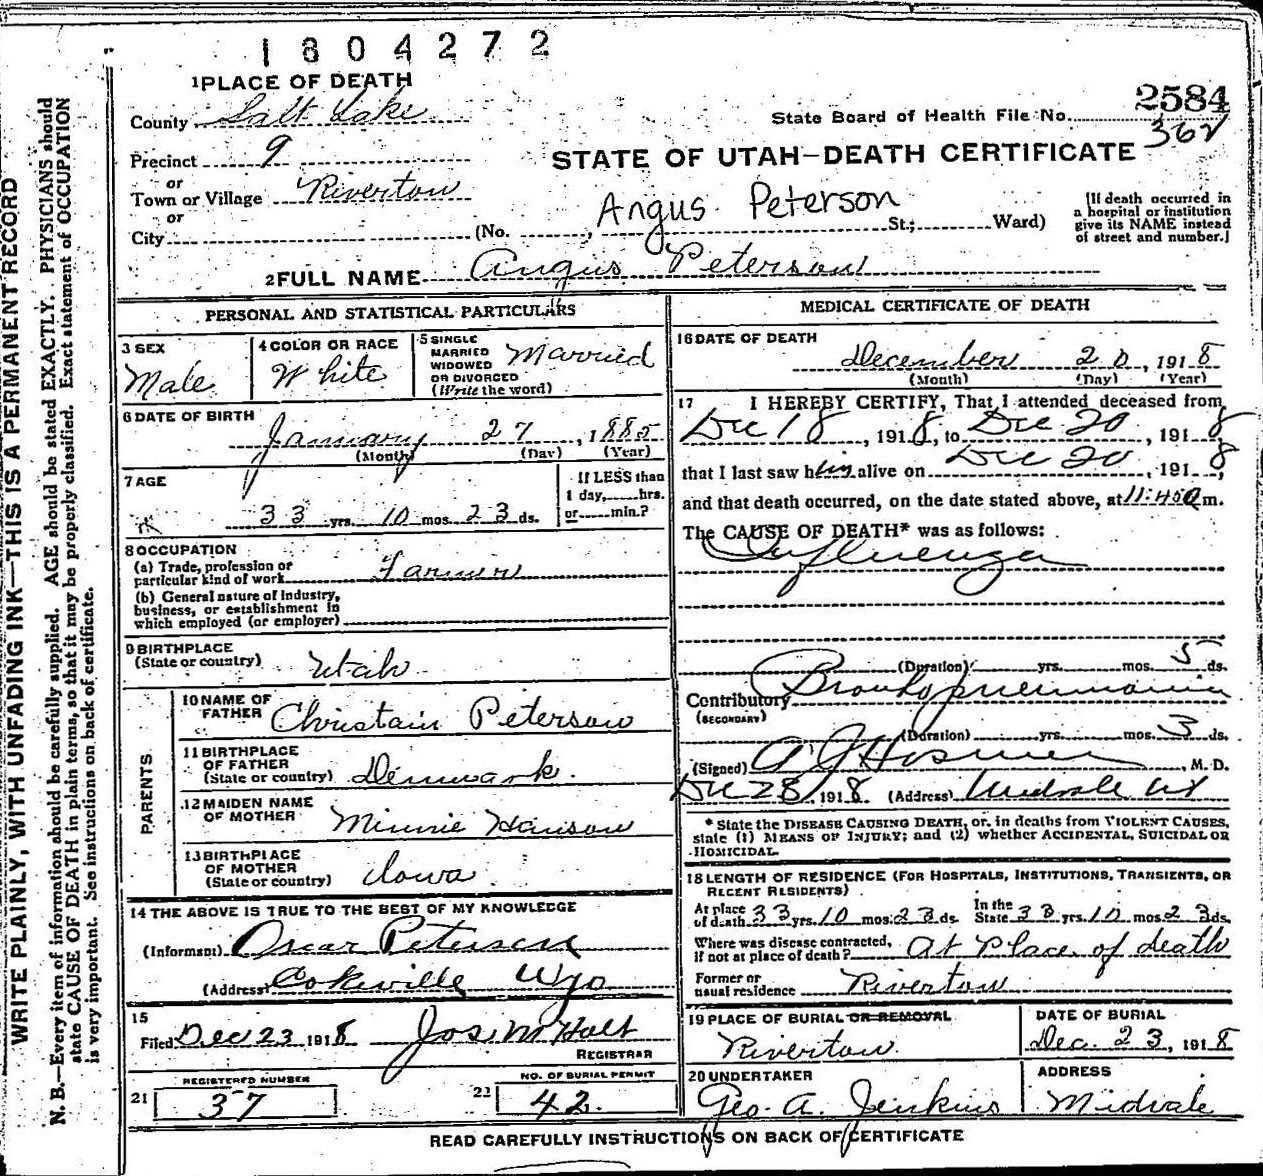 1804272
1 PLACE OF DEATH
County Salt Lake
Precinct 9
or
Town or Village Riverton
or
City (No. , St.; Ward)
State Board of Health File No. 2584
362
STATE OF UTAH—DEATH CERTIFICATE
Angus Peterson
[If death occurred in
a hospital or institution
give its NAME instead
of street and number.]
2 FULL NAME Angus Peterson
PERSONAL AND STATISTICAL PARTICULARS
3 SEX
Male
4 COLOR OR RACE
White
5 SINGLE
MARRIED
WIDOWED
OR DIVORCED
(Write the word)
Married
6 DATE OF BIRTH
January 27, 1885
(Month) (Day) (Year)
7 AGE
33 yrs. 10 mos. 23 ds.
If LESS than
1 day, hrs.
or min.?
8 OCCUPATION
(a) Trade, profession or
particular kind of work Farmer
(b) General nature of industry,
business, or establishment in
which employed (or employer)
9 BIRTHPLACE
(State or country) Utah
PARENTS
10 NAME OF
FATHER Christain Peterson
11 BIRTHPLACE
OF FATHER
(State or country) Denmark.
12 MAIDEN NAME
OF MOTHER Minnie Hanson
13 BIRTHPLACE
OF MOTHER
(State or country) Iowa
14 THE ABOVE IS TRUE TO THE BEST OF MY KNOWLEDGE
(Informant) Oscar Peterson
(Address) Cokeville Wyo
15
Filed Dec 23 1918 Jos. M Holt
REGISTRAR
REGISTERED NUMBER
21 37
NO. OF BURIAL PERMIT
22 42.
MEDICAL CERTIFICATE OF DEATH
16 DATE OF DEATH
December 20, 1918
(Month) (Day) (Year)
17 I HEREBY CERTIFY, That I attended deceased from
Dec 18, 1918, to Dec 20, 1918
that I last saw him alive on Dec 20, 1918,
and that death occurred, on the date stated above, at 11:45 a m.
The CAUSE OF DEATH* was as follows:
Influenza
(Duration) yrs. mos. 5 ds.
Contributory Broncho pneumonia
(SECONDARY)
(Duration) yrs. mos. 3 ds.
(Signed) A J Hosmer, M. D.
Dec 28, 1918 (Address) Midvale Ut
* State the DISEASE CAUSING DEATH, or, in deaths from VIOLENT CAUSES,
state (1) MEANS OF INJURY; and (2) whether ACCIDENTAL, SUICIDAL OR
HOMICIDAL.
18 LENGTH OF RESIDENCE (FOR HOSPITALS, INSTITUTIONS, TRANSIENTS, OR
RECENT RESIDENTS)
At place
of death 33 yrs. 10 mos. 23 ds.
In the
State 33 yrs. 10 mos. 23 ds.
Where was disease contracted,
if not at place of death? At Place of death
Former or
usual residence Riverton
19 PLACE OF BURIAL OR REMOVAL
Riverton.
DATE OF BURIAL
Dec. 23, 1918
20 UNDERTAKER
Geo. A. Jenkins
ADDRESS
Midvale
READ CAREFULLY INSTRUCTIONS ON BACK OF CERTIFICATE
WRITE PLAINLY, WITH UNFADING INK—THIS IS A PERMANENT RECORD
N. B.—Every item of information should be carefully supplied. AGE should be stated EXACTLY. PHYSICIANS should
state CAUSE OF DEATH in plain terms, so that it may be properly classified. Exact statement of OCCUPATION
is very important. See instructions on back of certificate.